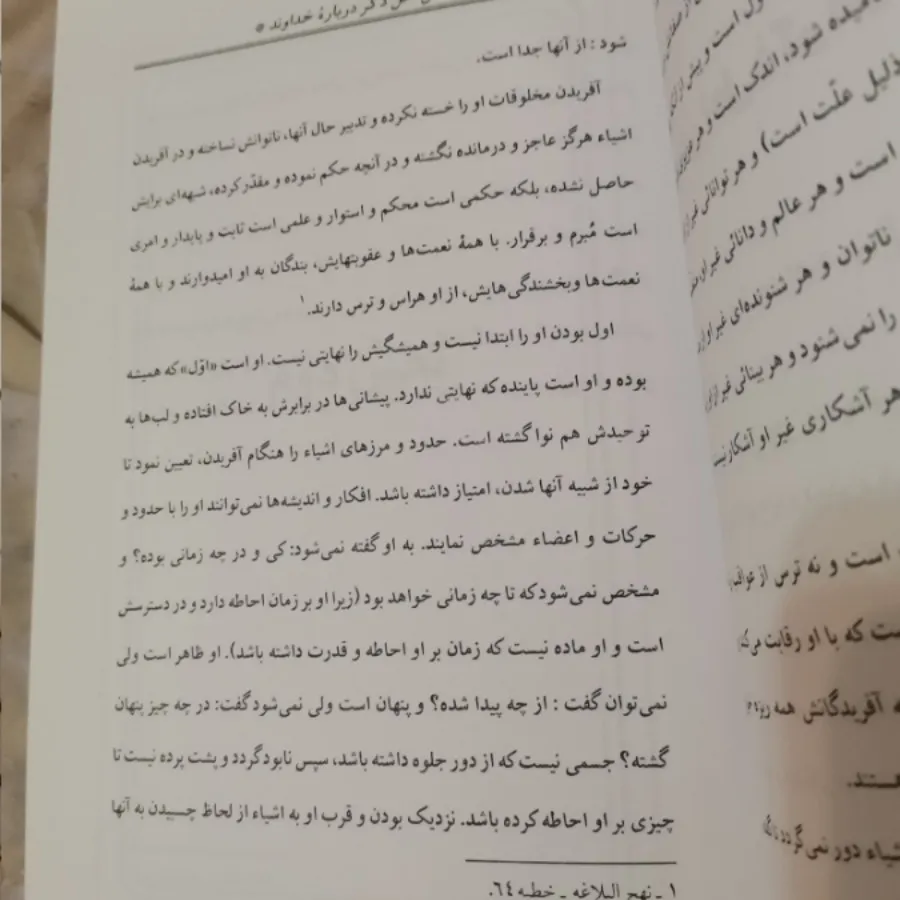 دربارهٔ خداوند
شود: از آنها جدا است.
آفریدن مخلوقات او را خسته نکرده و تدبیر حال آنها، ناتوانش نساخته و در آفریدن
اشیاء هرگز عاجز و درمانده نگشته و در آنچه حکم نموده و مقدّر کرده، شبهه‌ای برایش
حاصل نشده، بلکه حکمی است محکم و استوار و علمی است ثابت و پایدار و امری
است مُبرم و برقرار. با همهٔ نعمت‌ها و عقوبتهایش، بندگان به او امیدوارند و با همهٔ
نعمت‌ها وبخشندگی‌هایش، از او هراس و ترس دارند.۱
اول بودن او را ابتدا نیست و همیشگیش را نهایتی نیست. او است «اوّل» که همیشه
بوده و او است پاینده که نهایتی ندارد. پیشانی‌ها در برابرش به خاک افتاده و لب‌ها به
توحیدش هم نوا گشته است. حدود و مرزهای اشیاء را هنگام آفریدن، تعیین نمود تا
خود از شبیه آنها شدن، امتیاز داشته باشد. افکار و اندیشه‌ها نمی‌توانند او را با حدود و
حرکات و اعضاء مشخص نمایند. به او گفته نمی‌شود: کی و در چه زمانی بوده؟ و
مشخص نمی‌شود که تا چه زمانی خواهد بود (زیرا او بر زمان احاطه دارد و در دسترسش
است و او ماده نیست که زمان بر او احاطه و قدرت داشته باشد). او ظاهر است ولی
نمی‌توان گفت : از چه پیدا شده؟ و پنهان است ولی نمی‌شود گفت: در چه چیز پنهان
گشته؟ جسمی نیست که از دور جلوه داشته باشد، سپس نابود گردد و پشت پرده نیست تا
چیزی بر او احاطه کرده باشد. نزدیک بودن و قرب او به اشیاء از لحاظ چسبیدن به آنها
۱ ـ نهج البلاغه ـ خطبه ۶۴.
ول است و پیش از
میده شود، اندک است و هر
ذلیل علّت است) و هر توانائی غیر
است و هر عالم و دانائی غیر او
ناتوان و هر شنونده‌ای غیر او
را نمی‌شنود و هر بینائی غیر از
هر آشکاری غیر او آشکار نیست
است و نه ترس از عواقب
ست که با او رقابت می‌کند
آفریدگانش همه
هستند.
شیاء دور نمی‌گردد